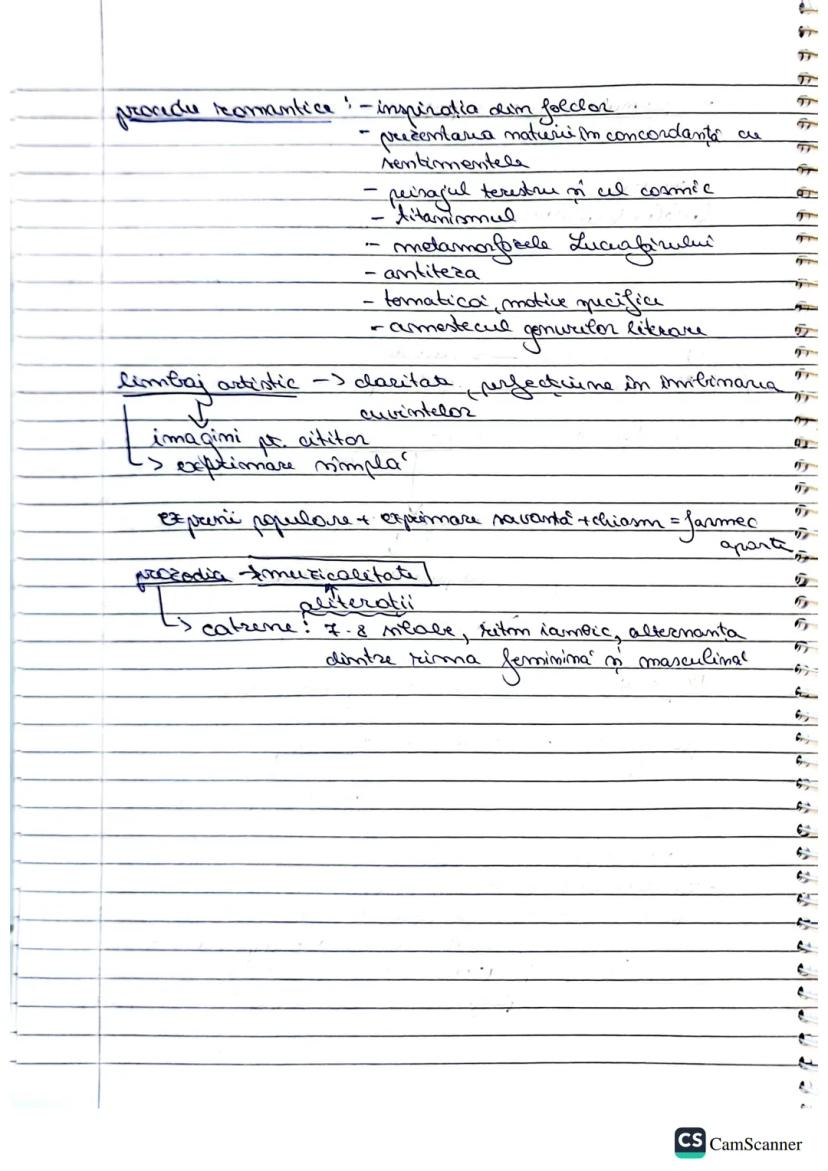 procedee romantice : - inspirația din folclor
- prezentarea naturii în concordanță cu
sentimentele
- peisajul terestru și cel cosmic
- titanismul
- metamorfozele Luceafărului
- antiteza
- tematica, motive specifice
- amestecul genurilor literare
limbaj artistic -> claritate, perfecțiune în îmbinarea
cuvintelor
imagini pt. cititor
-> exprimare simplă
expresii populare + exprimare savantă + chiasm = farmec
aparte
prozodia -> muzicalitate
aliterații
-> catrene: 7-8 silabe, ritm iambic, alternanța
dintre rima feminină și masculină
CS CamScanner